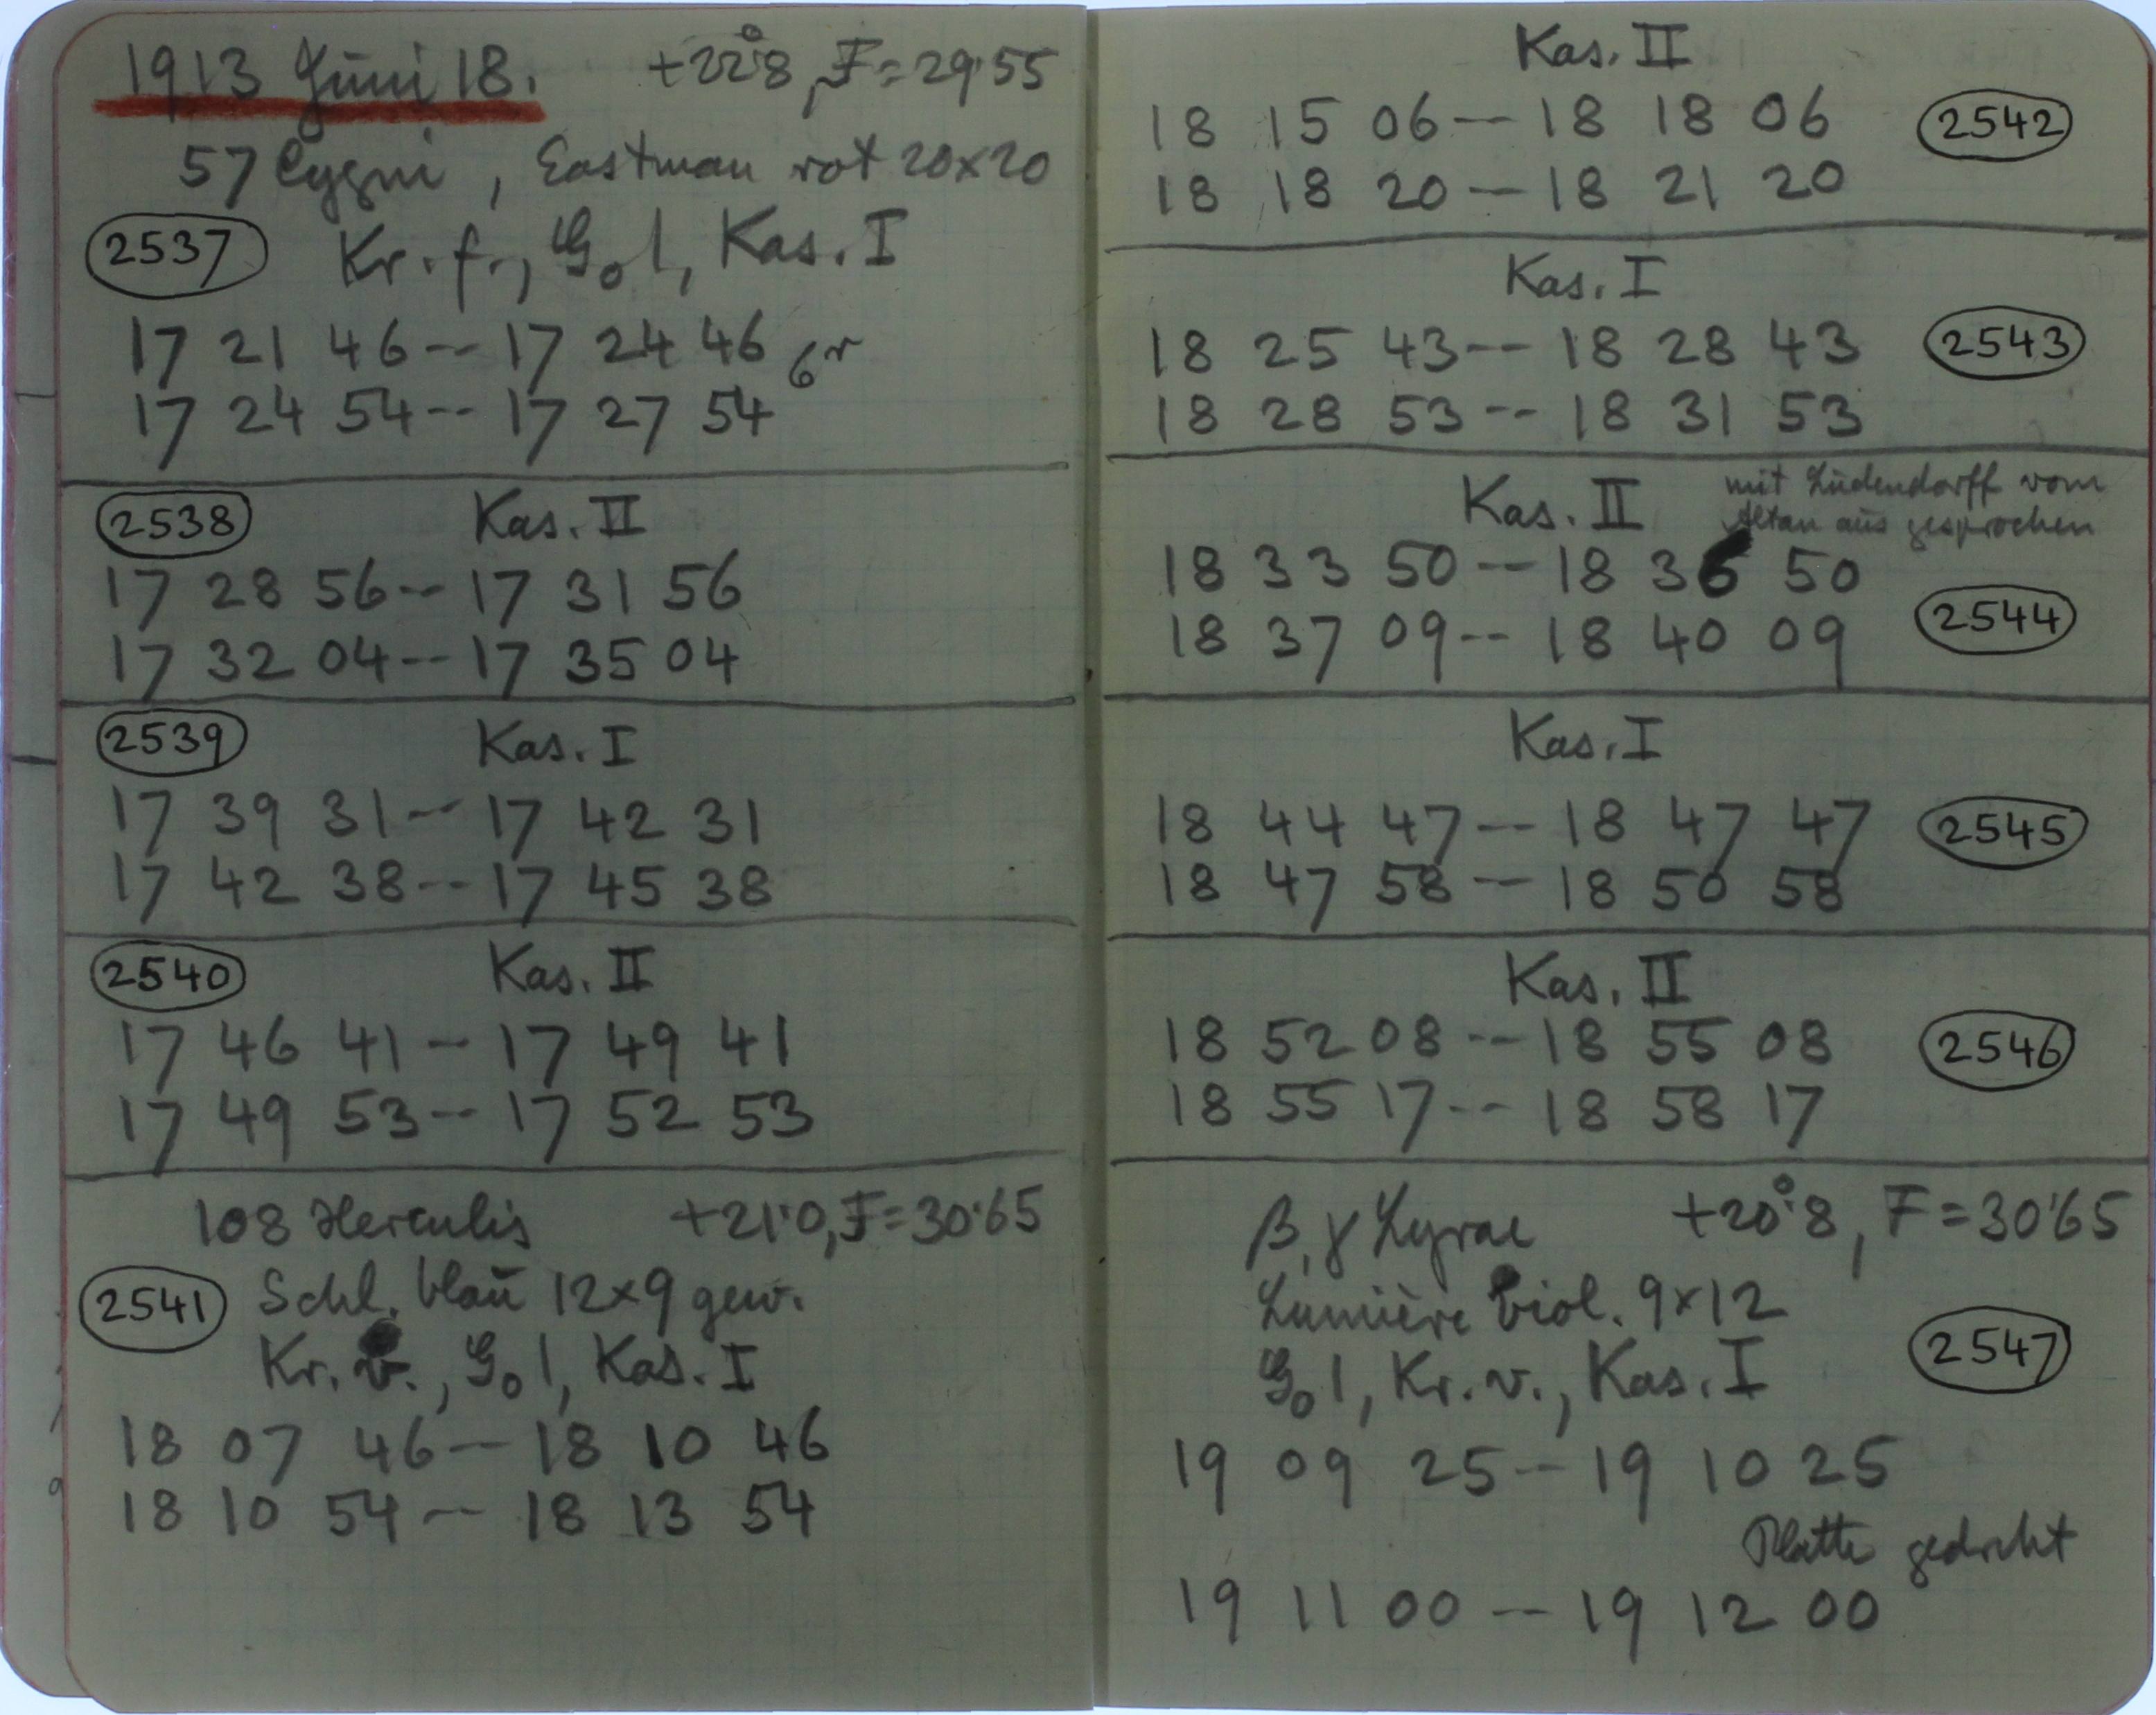 1913 Juni 18. +22°8, F=29.55
57 Cygni, Eastman rot 20x20
2537 Kr. f., G₀ 1, Kas. I
17 21 46 -- 17 24 46
17 24 54 -- 17 27 54
2538 Kas. II
17 28 56 -- 17 31 56
17 32 04 -- 17 35 04
2539 Kas. I
17 39 31 -- 17 42 31
17 42 38 -- 17 45 38
2540 Kas. II
17 46 41 -- 17 49 41
17 49 53 -- 17 52 53
108 Herculis +21.0, F=30.65
2541 Schl. blau 12x9 gew.
Kr. v., G₀ 1, Kas. I
18 07 46 -- 18 10 46
18 10 54 -- 18 13 54
Kas. II
18 15 06 -- 18 18 06 2542
18 18 20 -- 18 21 20
Kas. I
18 25 43 -- 18 28 43 2543
18 28 53 -- 18 31 53
Kas. II mit Ludendorff vom
Altan aus gesprochen
18 33 50 -- 18 36 50
18 37 09 -- 18 40 09 2544
Kas. I
18 44 47 -- 18 47 47 2545
18 47 58 -- 18 50 58
Kas. II
18 52 08 -- 18 55 08 2546
18 55 17 -- 18 58 17
β, γ Lyrae +20°8, F=30.65
Lumière viol. 9x12
G₀ 1, Kr. v., Kas. I 2547
19 09 25 -- 19 10 25
Platte gedreht
19 11 00 -- 19 12 00